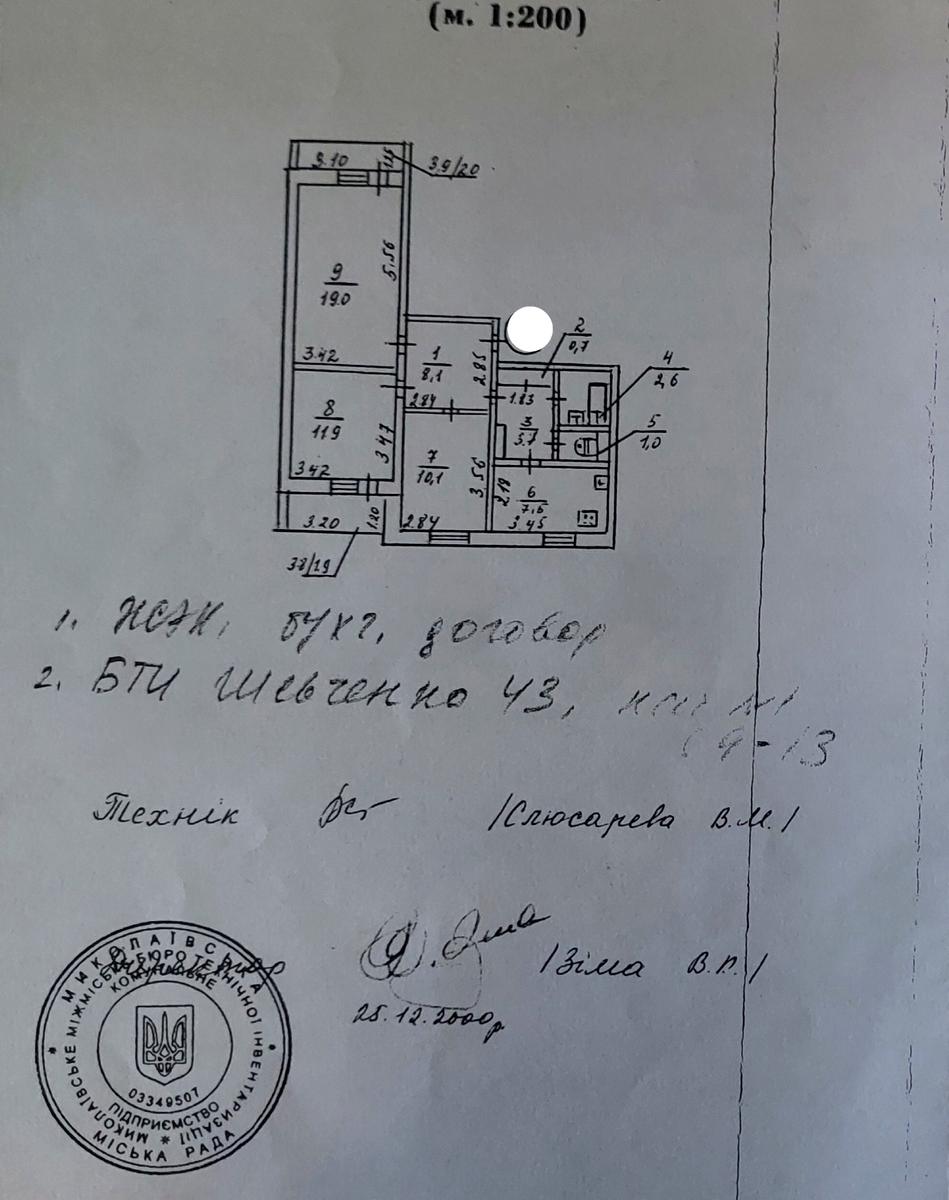 (м. 1:200)
3.10
1.25
3.9/20
5.56
9
19.0
3.42
2
0,7
1
8,1
2.85
2.84
4
2,6
1.83
5
1,0
3
5.7
8
11.9
3.47
3.42
7
10,1
3.56
2.84
2.18
6
7,6
3.45
3.20
1.20
3.8/19
1. ЖЭК, бухг. договор
2. БТИ Шевченко 43,
Технік /Слюсарева В.М./
/Зіма В.П./
25.12.2000р
МИКОЛАЇВСЬКА МІСЬКА РАДА
МИКОЛАЇВСЬКЕ МІЖМІСЬКЕ БЮРО ТЕХНІЧНОЇ ІНВЕНТАРИЗАЦІЇ
КОМУНАЛЬНЕ ПІДПРИЄМСТВО
03349507